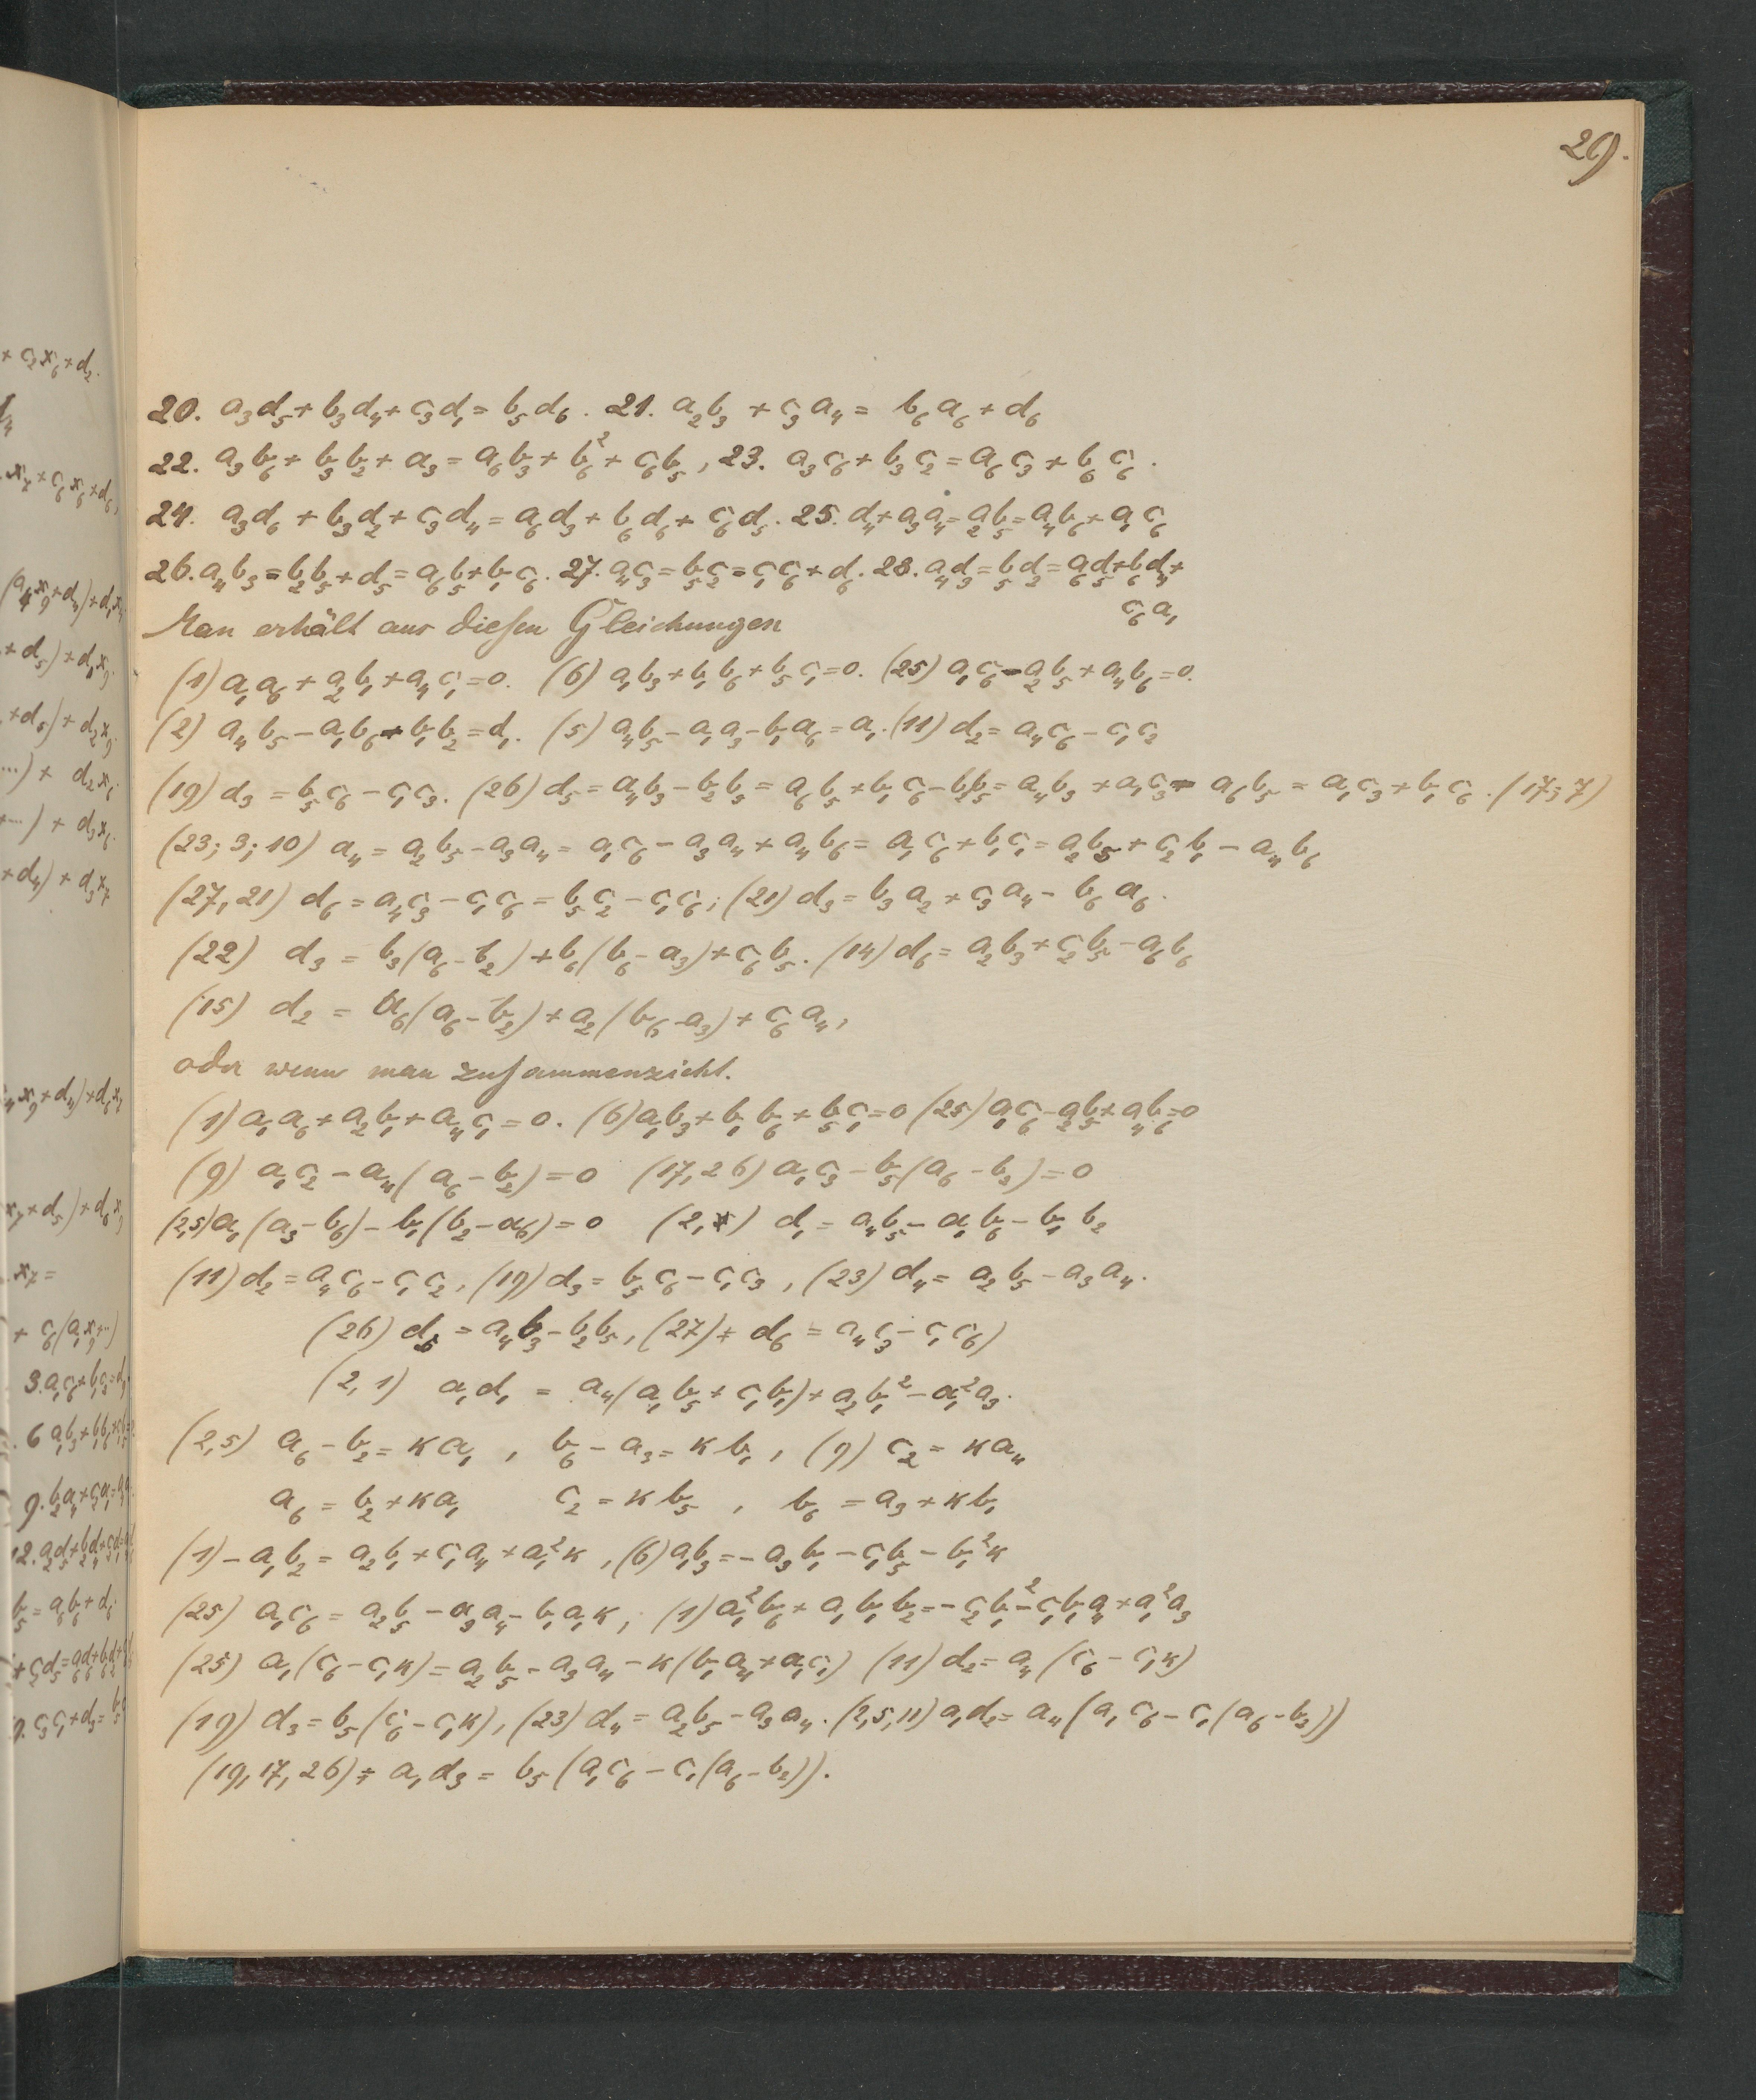 29.
20. a₃d₅+b₃d₄+c₃d₁=b₅d₆. 21. a₂b₃+c₃a₄= b₆a₆+d₆
22. a₃b₆+b₃b₂+a₃=a₆b₃+b₆²+c₆b₅, 23. a₃c₆+b₃c₂=a₆c₃+b₆c₆.
24. a₃d₆+b₃d₂+c₃d₄=a₆d₃+b₆d₆+c₆d₅. 25. d₄+a₃a₄=a₂b₅=a₄b₆+a₁c₆
26. a₄b₃=b₂b₅+d₅=a₆b₅+b₁c₆. 27. a₄c₃=b₅c₂=c₁c₆+d₆. 28. a₄d₃=b₅d₂=a₆d₅+b₆d₄+
c₆a₁
Man erhält aus dieſen Gleichungen
(1) a₁a₆+a₂b₁+a₄c₁=0. (6) a₁b₃+b₁b₆+b₅c₁=0. (25) a₁c₆-a₂b₅+a₄b₆=0.
(2) a₄b₅-a₁b₆-b₁b₂=d₁. (5) a₄b₅-a₁a₃-b₁a₆=a₁. (11) d₂= a₄c₆-c₁c₂
(19) d₃=b₅c₆-c₁c₃. (26) d₅=a₄b₃-b₂b₃=a₆b₅+b₁c₆-b₂b₅=a₄b₃+a₁c₃-a₆b₅=a₁c₃+b₁c₆. (17; 7)
(23; 3; 10) a₄=a₂b₅-a₃a₄=a₁c₆-a₃a₄+a₄b₆=a₁c₆+b₁c₁=a₂b₅+c₂b₁-a₄b₆
(27, 21) d₆=a₄c₃-c₁c₆=b₅c₂-c₁c₆; (21) d₃=b₃a₂+c₃a₄-b₆a₆.
(22) d₃=b₃(a₆-b₂)+b₆(b₆-a₃)+c₆b₅. (14) d₆=a₂b₃+c₂b₅-a₆b₆
(15) d₂=a₆(a₆-b₂)+a₂(b₆-a₃)+c₆a₄,
oder wenn man zuſammenzieht.
(1) a₁a₆+a₂b₁+a₄c₁=0. (6) a₁b₃+b₁b₆+b₅c₁=0 (25) a₁c₆-a₂b₅+a₄b₆=0
(9) a₁c₂-a₄(a₆-b₂)=0 (17, 26) a₁c₃-b₅(a₆-b₂)=0
(2,5) a₁(a₃-b₆)-b₁(b₂-a₆)=0 (2, ) d₁=a₄b₅-a₁b₆-b₁b₂
(11) d₂=a₄c₆-c₁c₂, (19) d₃=b₅c₆-c₁c₃, (23) d₄=a₂b₅-a₃a₄.
(26) d₅=a₄b₃-b₂b₅, (27)+ d₆=a₄c₃-c₁c₆)
(2, 1) a₁d₁=a₄(a₁b₅+c₁b₁)+a₂b₁²-a₁²a₃.
(2,5) a₆-b₂=κa₁, b₆-a₃=κb₁, (9) c₂=κa₄
a₆=b₂+κa₁ c₂=κb₅, b₆=a₃+κb₁
(1) -a₁b₂=a₂b₁+c₁a₄+a₁²κ, (6) a₁b₃=-a₃b₁-c₁b₅-b₁²κ
(25) a₁c₆=a₂b₅-a₃a₄-b₁a₁κ, (1) a₁²b₆+a₁b₁b₂=-c₂b₁²-c₁b₁a₄+a₁²a₃
(25) a₁(c₆-c₁κ)=a₂b₅-a₃a₄-κ(b₁a₄+a₁c₁) (11) d₂=a₄(c₆-c₁κ)
(19) d₃=b₅(c₆-c₁κ), (23) d₄=a₂b₅-a₃a₄. (2,5,11) a₁d₂=a₄(a₁c₆-c₁(a₆-b₂))
(19, 17, 26)+ a₁d₃=b₅(a₁c₆-c₁(a₆-b₂)).